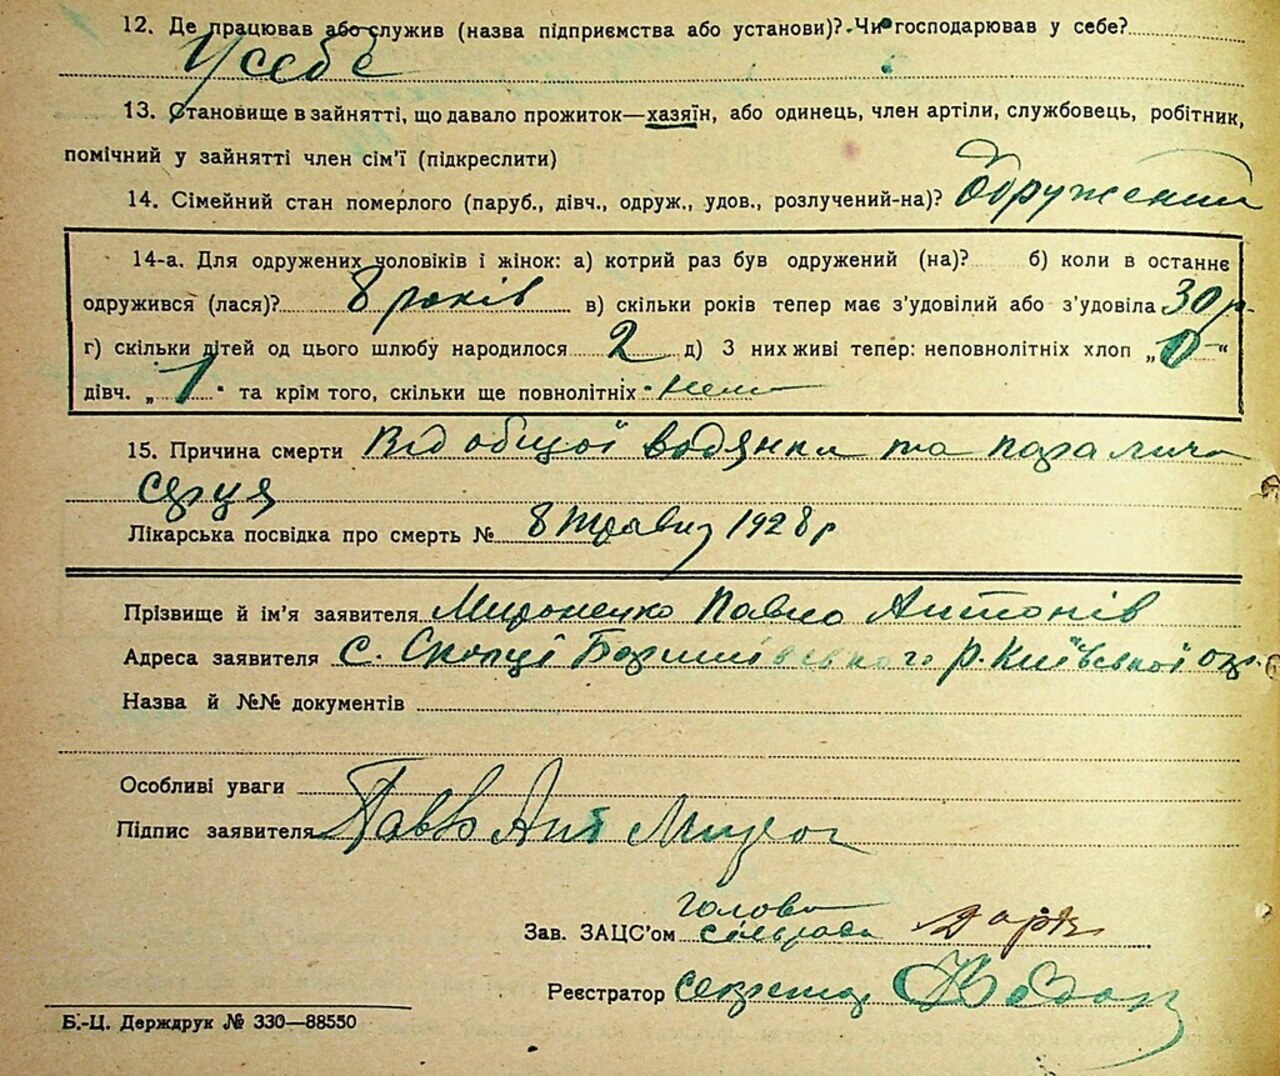 12. Де працював або служив (назва підприємства або установи)? Чи господарював у себе?
У себе
13. Становище в зайнятті, що давало прожиток—хазяїн, або одинець, член артіли, службовець, робітник,
помічний у зайнятті член сім'ї (підкреслити)
14. Сімейний стан померлого (паруб., дівч., одруж., удов., розлучений-на)? Одружений
14-а. Для одружених чоловіків і жінок: а) котрий раз був одружений (на)? б) коли в останнє
одружився (лася)? 8 років в) скільки років тепер має з'удовілий або з'удовіла 30 р.
г) скільки дітей од цього шлюбу народилося 2 д) З них живі тепер: неповнолітніх хлоп „0“
дівч. „1“ та крім того, скільки ще повнолітніх нема
15. Причина смерти Від общої водянки та параліча
серця
Лікарська посвідка про смерть № 8 травня 1928 р
Прізвище й ім'я заявителя Мироненко Павло Антонів
Адреса заявителя с. Скопці Баришівського р. Київської окр.
Назва й №№ документів
Особливі уваги
Підпис заявителя Павло Ант Мирон
голова
Зав. ЗАЦС'ом сільради
Реєстратор секретар
Б.-Ц. Держдрук № 330—88550